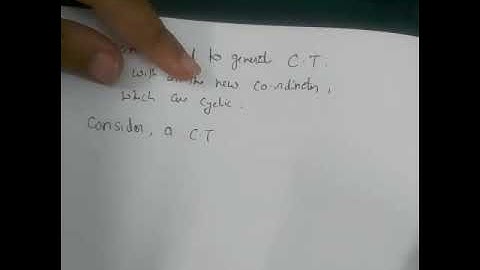 to general C.T.
with all the new co-ordinates,
which are cyclic.
Consider, a C.T